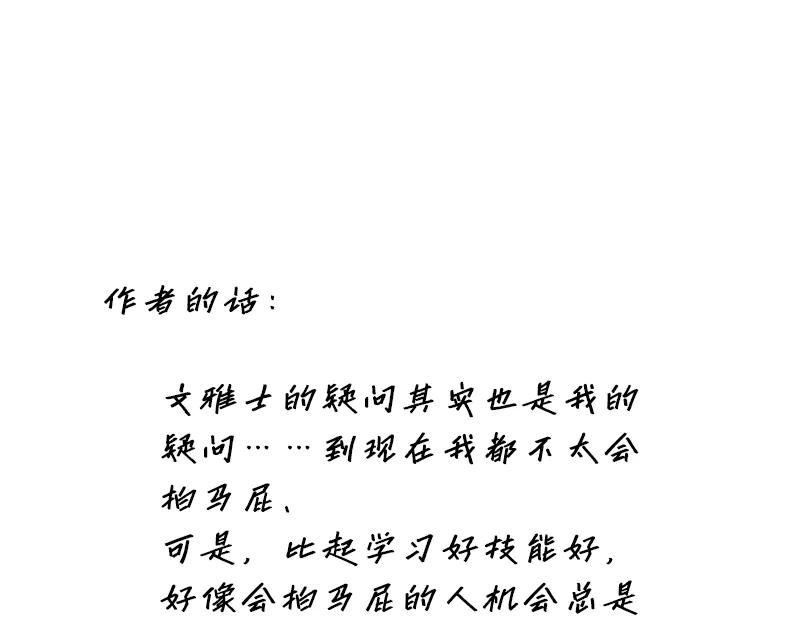 作者的话：
文雅士的疑问其实也是我的
疑问……到现在我都不太会
拍马屁、
可是，比起学习好技能好，
好像会拍马屁的人机会总是